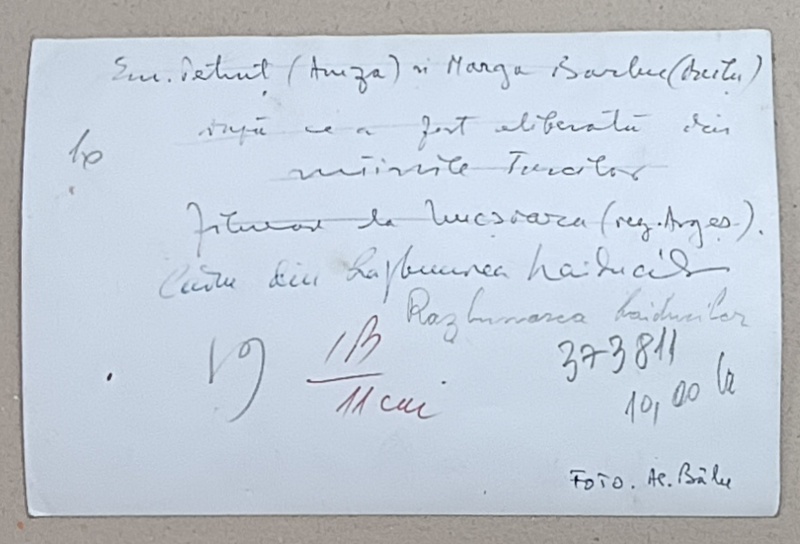 Em. Petruț (Amza) și Marga Barbu (Anița)
după ce a fost eliberată din
mîinile Turcilor
filmare la Nucșoara (reg. Argeș).
Cadru din Răzbunarea haiducilor
Razbunarea haiducilor
19
1B
11 cm
373811
10,00 lei
FOTO. Al. Bălu